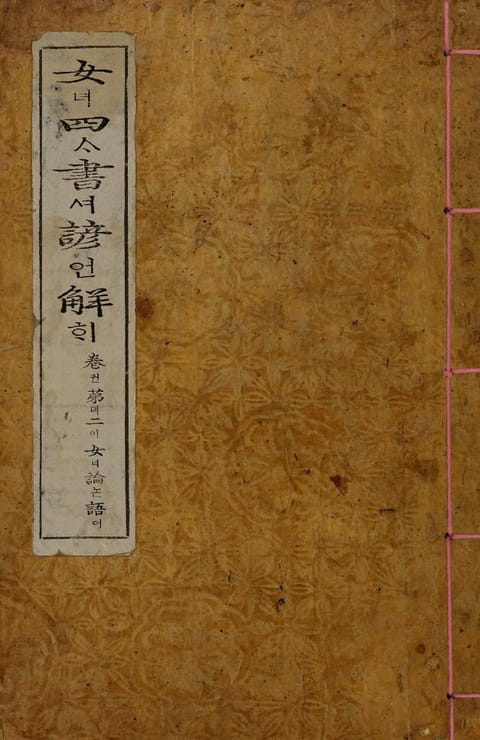 女녀四ᄉᆞ書셔諺언解ᄒᆡ
卷권第뎨二이女녀論논語어